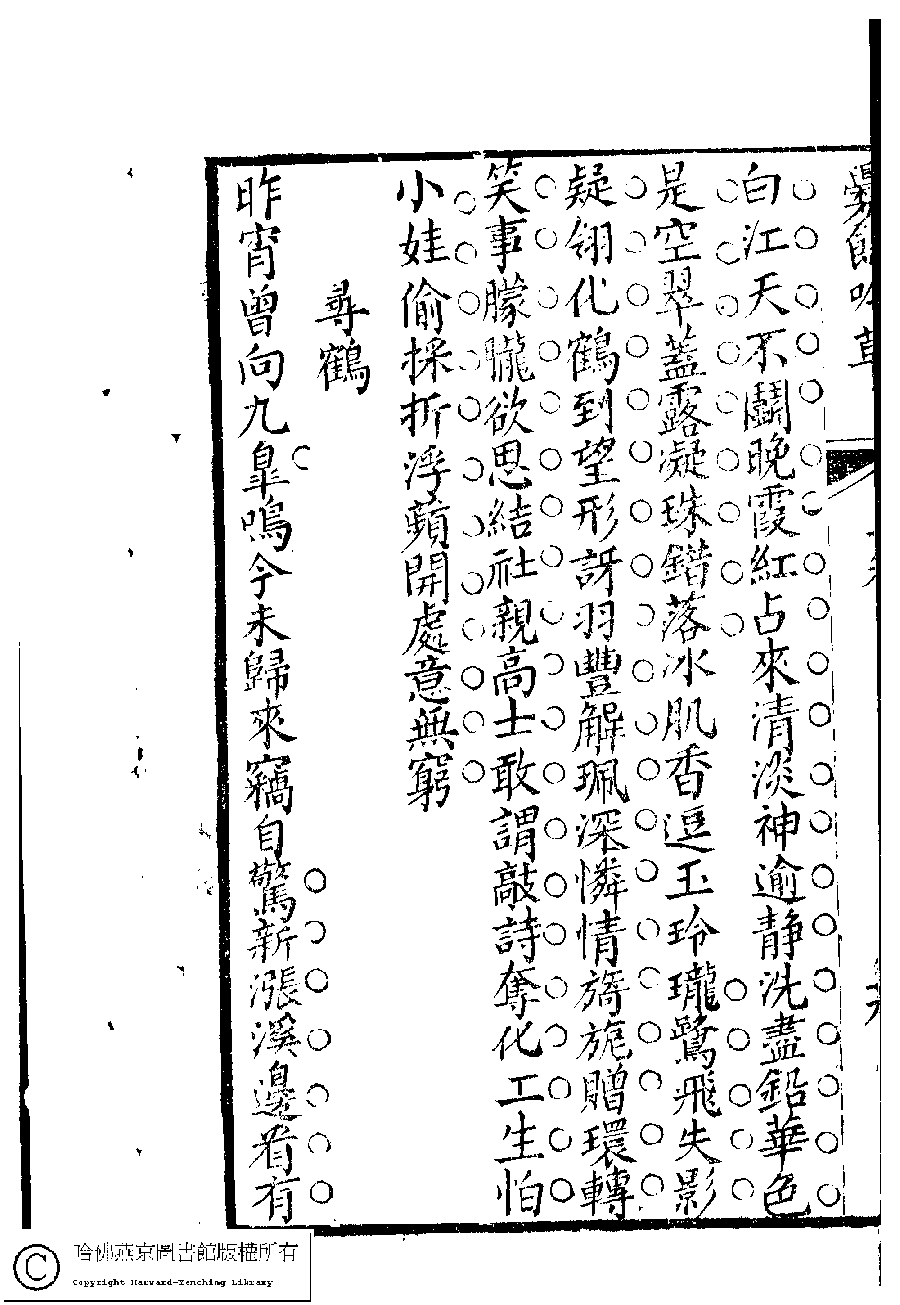 白江天不鬭晚霞紅占來清淡神逾靜洗盡鉛華色
是空翠蓋露凝珠錯落冰肌香逗玉玲瓏鷺飛失影
疑翎化鶴到望形訝羽豐解珮深憐情旖旎贈環轉
笑事朦朧欲思結社親高士敢謂敲詩奪化工生怕
小娃偷採折浮蘋開處意無窮
尋鶴
昨宵曾向九臯鳴今未歸來竊自驚新漲溪邊看有
哈佛燕京圖書館版權所有
Copyright Harvard-Yenching Library